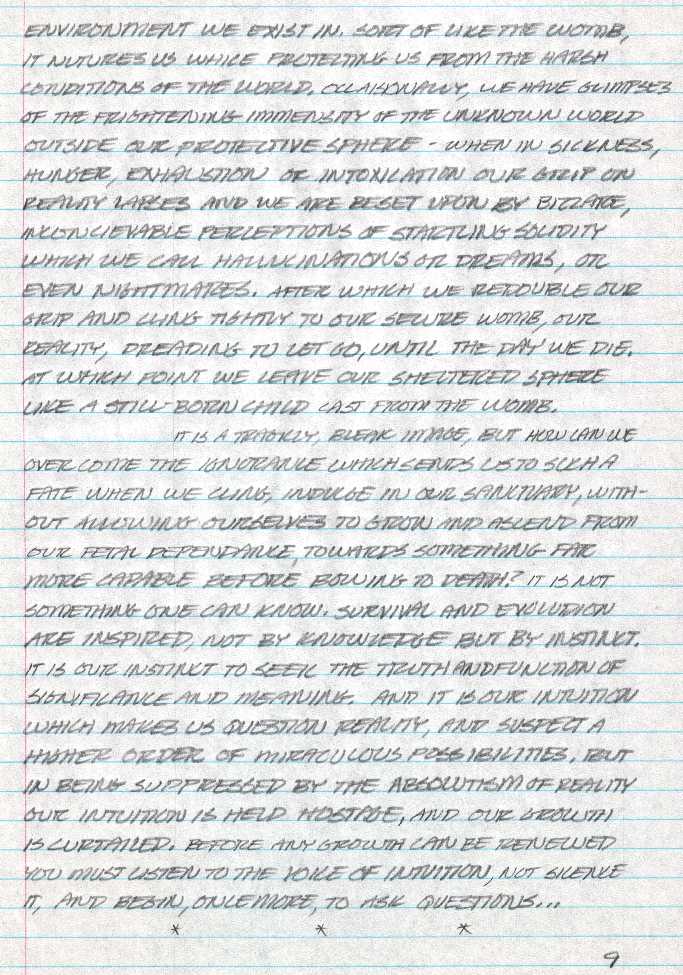 ENVIRONMENT WE EXIST IN. SORT OF LIKE THE WOMB,
IT NUTURES US WHILE PROTECTING US FROM THE HARSH
CONDITIONS OF THE WORLD. OCCAISONALLY, WE HAVE GLIMPSES
OF THE FRIGHTENING IMMENSITY OF THE UNKNOWN WORLD
OUTSIDE OUR PROTECTIVE SPHERE - WHEN IN SICKNESS,
HUNGER, EXHAUSTION OR INTOXICATION OUR GRIP ON
REALITY LAPSES AND WE ARE BESET UPON BY BIZZARE,
INCONCIEVABLE PERCEPTIONS OF STARTLING SOLIDITY
WHICH WE CALL HALLUCINATIONS OR DREAMS, OR
EVEN NIGHTMARES. AFTER WHICH WE REDOUBLE OUR
GRIP AND CLING TIGHTLY TO OUR SECURE WOMB, OUR
REALITY, DREADING TO LET GO, UNTIL THE DAY WE DIE.
AT WHICH POINT WE LEAVE OUR SHELTERED SPHERE
LIKE A STILL-BORN CHILD CAST FROM THE WOMB.
IT IS A BLEAK IMAGE, BUT HOW CAN WE
OVERCOME THE IGNORANCE WHICH SENDS US TO SUCH A
FATE WHEN WE CLING, INDULGE IN OUR SANCTUARY, WITH-
OUT ALLOWING OURSELVES TO GROW AND ASCEND FROM
OUR FETAL DEPENDANCE, TOWARDS SOMETHING FAR
MORE CAPABLE BEFORE BOWING TO DEATH? IT IS NOT
SOMETHING ONE CAN KNOW. SURVIVAL AND EVOLUTION
ARE INSPIRED, NOT BY KNOWLEDGE BUT BY INSTINCT.
IT IS OUR INSTINCT TO SEEK THE TRUTH AND FUNCTION OF
SIGNIFICANCE AND MEANING. AND IT IS OUR INTUITION
WHICH MAKES US QUESTION REALITY, AND SUSPECT A
HIGHER ORDER OF MIRACULOUS POSSIBILITIES. BUT
IN BEING SUPPRESSED BY THE ABSOLUTISM OF REALITY
OUR INTUITION IS HELD HOSTAGE, AND OUR GROWTH
IS CURTAILED. BEFORE ANY GROWTH CAN BE RENEWED
YOU MUST LISTEN TO THE VOICE OF INTUITION, NOT SILENCE
IT, AND BEGIN, ONCE MORE, TO ASK QUESTIONS...
* * *
9